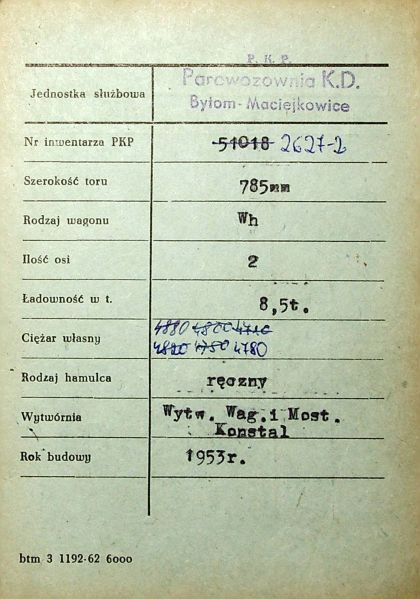 P. K. P.
Jednostka służbowa Parowozownia K.D.
Bytom-Maciejkowice
Nr inwentarza PKP 51018 2627-2
Szerokość toru 785mm
Rodzaj wagonu Wh
Ilość osi 2
Ładowność w t. 8,5t.
4880 4800 4710
Ciężar własny 4820 4750 4780
Rodzaj hamulca ręczny
Wytwórnia Wytw. Wag.i Most.
Konstal
Rok budowy 1953r.
btm 3 1192-62 6000